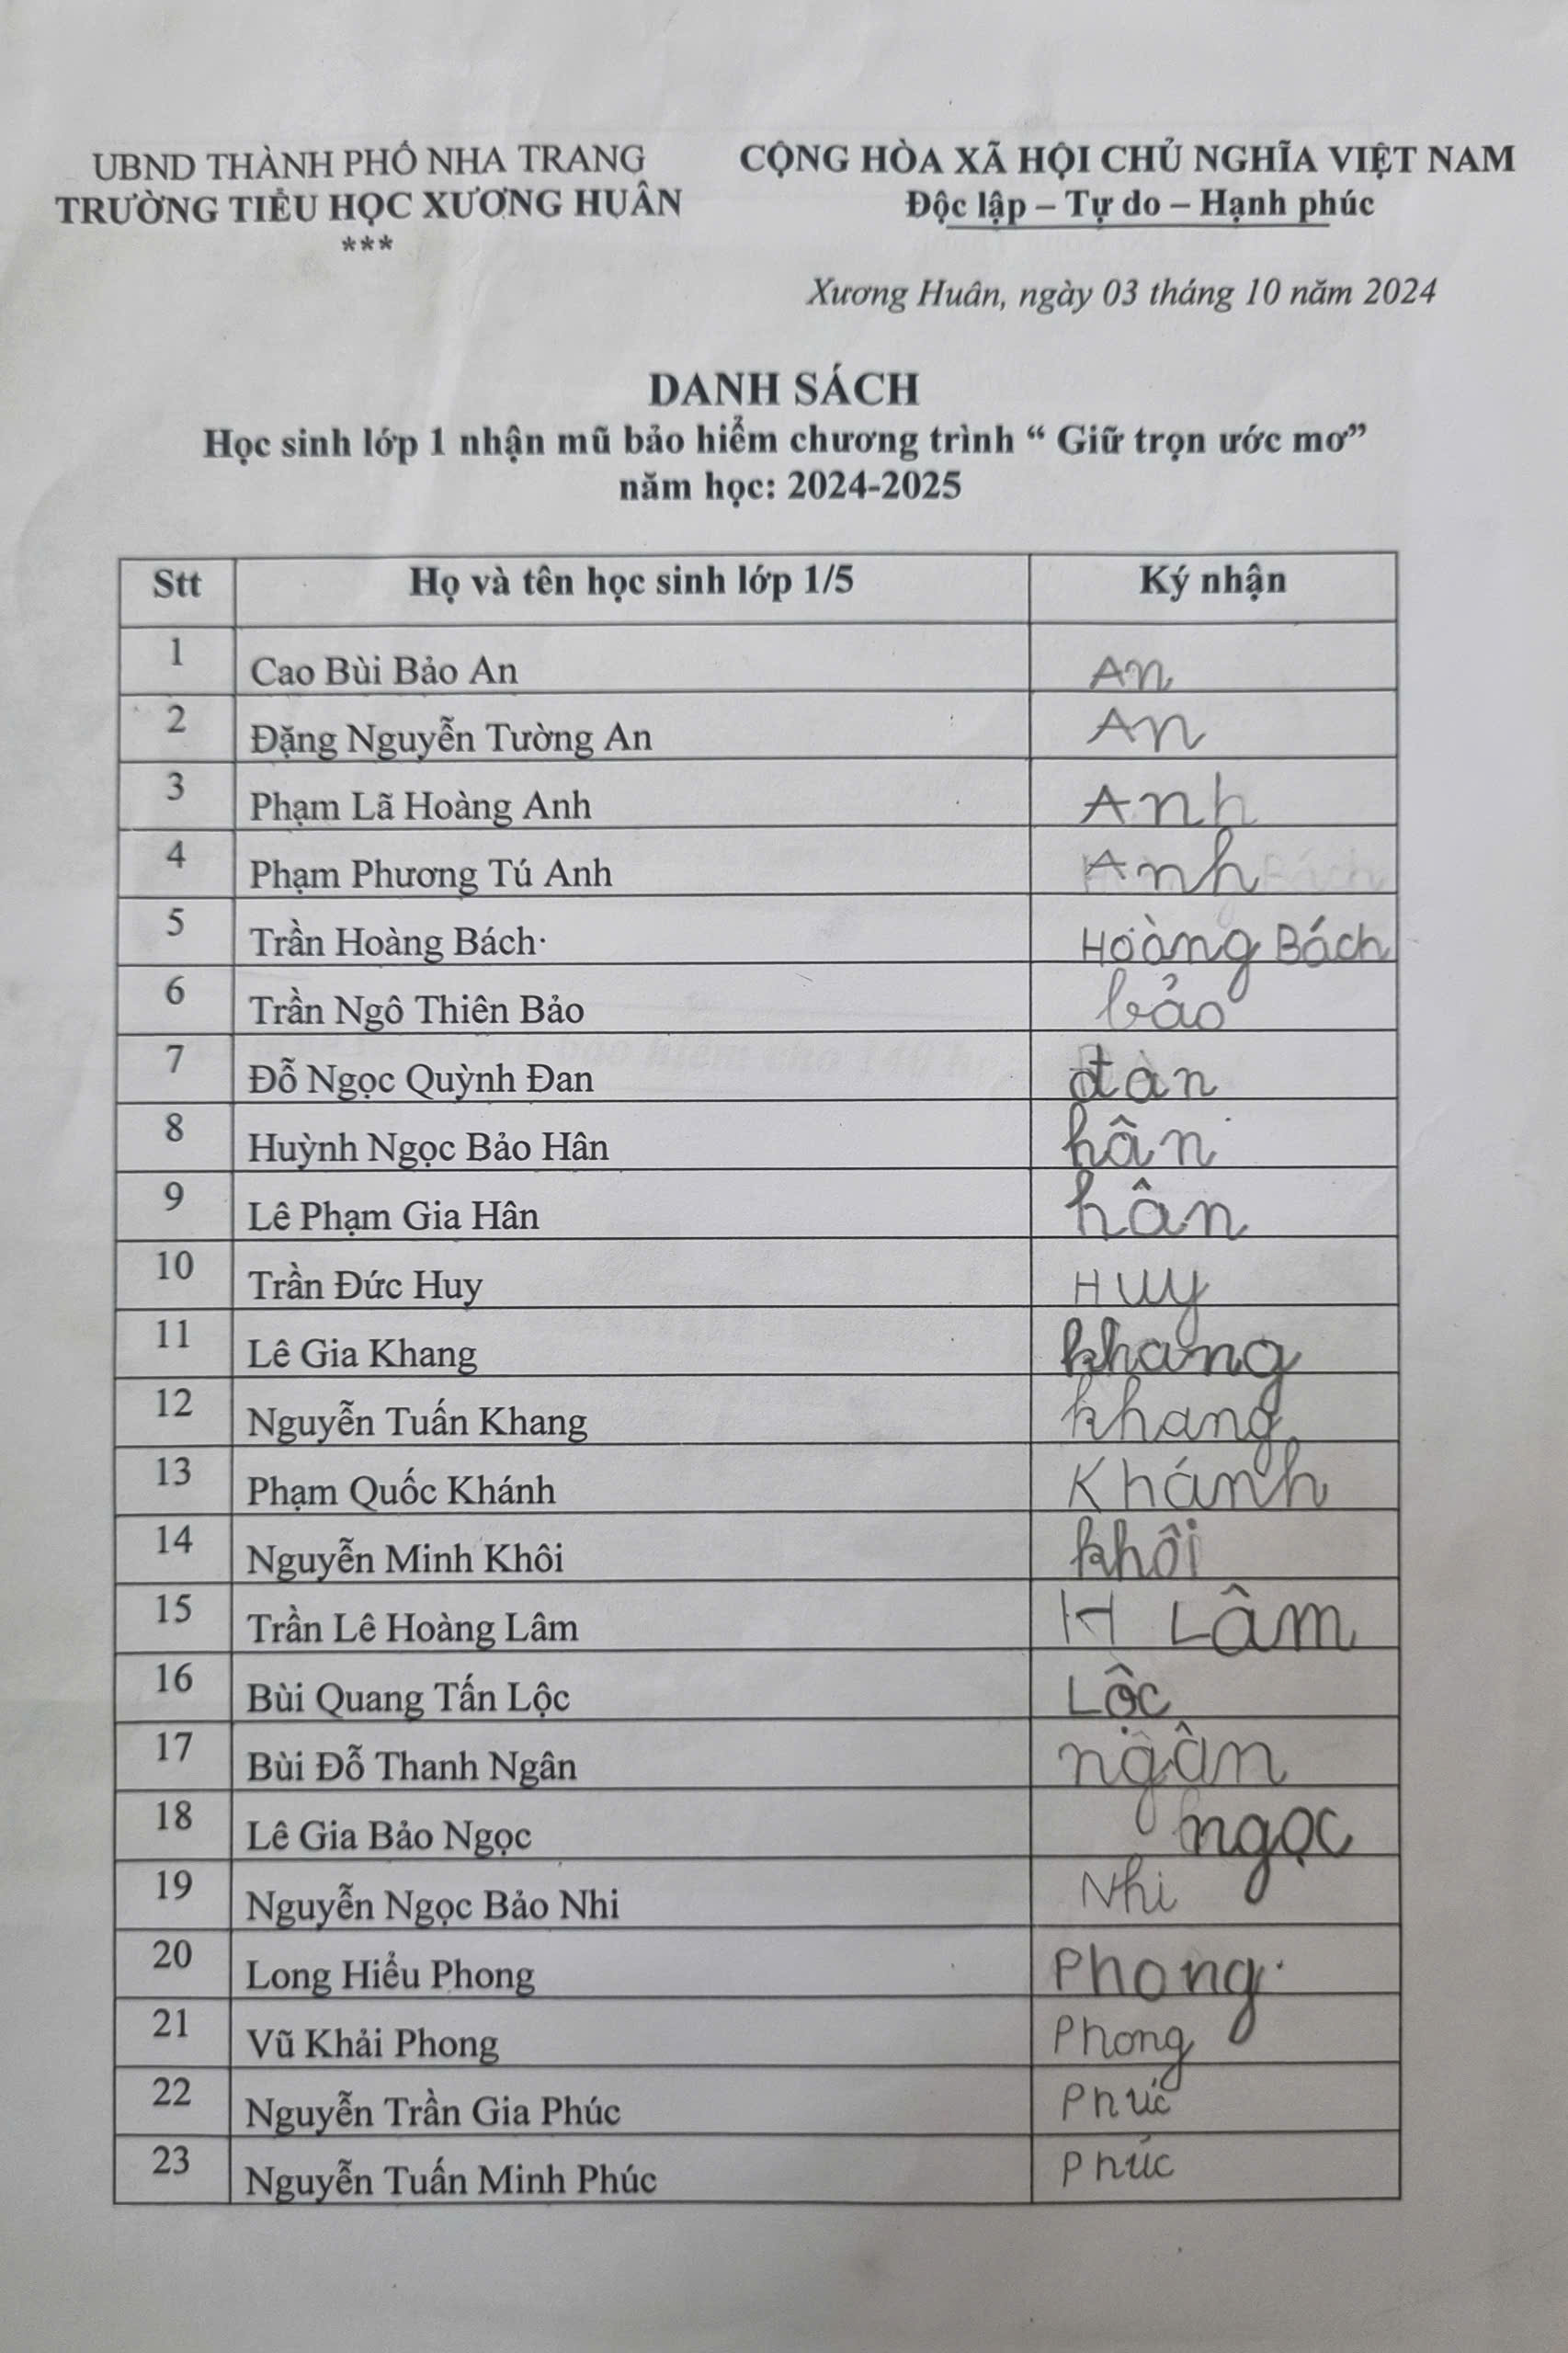 UBND THÀNH PHỐ NHA TRANG
TRƯỜNG TIỂU HỌC XƯƠNG HUÂN
***
CỘNG HÒA XÃ HỘI CHỦ NGHĨA VIỆT NAM
Độc lập – Tự do – Hạnh phúc
Xương Huân, ngày 03 tháng 10 năm 2024
DANH SÁCH
Học sinh lớp 1 nhận mũ bảo hiểm chương trình “ Giữ trọn ước mơ”
năm học: 2024-2025
Stt Họ và tên học sinh lớp 1/5 Ký nhận
1 Cao Bùi Bảo An An
2 Đặng Nguyễn Tường An An
3 Phạm Lã Hoàng Anh Anh
4 Phạm Phương Tú Anh Anh
5 Trần Hoàng Bách Hoàng Bách
6 Trần Ngô Thiên Bảo bảo
7 Đỗ Ngọc Quỳnh Đan đan
8 Huỳnh Ngọc Bảo Hân hân
9 Lê Phạm Gia Hân hân
10 Trần Đức Huy Huy
11 Lê Gia Khang khang
12 Nguyễn Tuấn Khang khang
13 Phạm Quốc Khánh Khánh
14 Nguyễn Minh Khôi khôi
15 Trần Lê Hoàng Lâm H Lâm
16 Bùi Quang Tấn Lộc Lộc
17 Bùi Đỗ Thanh Ngân ngân
18 Lê Gia Bảo Ngọc ngọc
19 Nguyễn Ngọc Bảo Nhi Nhi
20 Long Hiểu Phong Phong
21 Vũ Khải Phong Phong
22 Nguyễn Trần Gia Phúc Phúc
23 Nguyễn Tuấn Minh Phúc Phúc